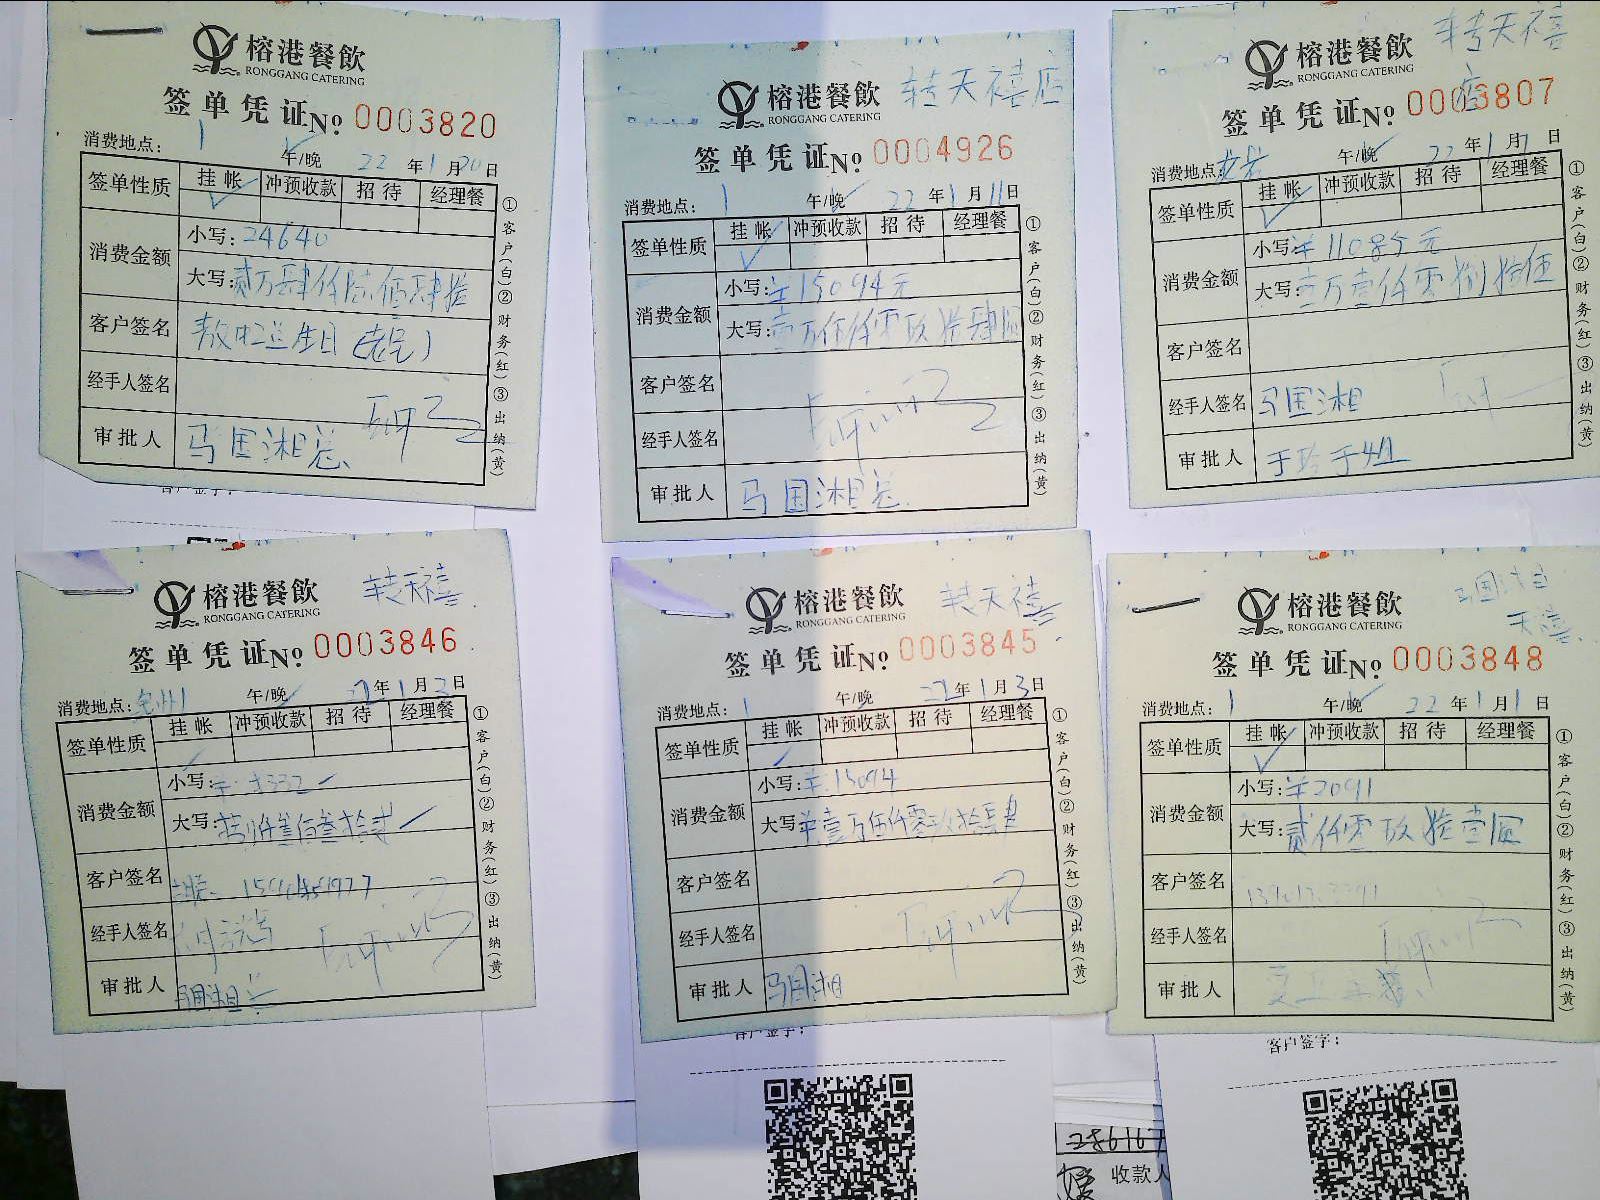 榕港餐飲
RONGGANG CATERING
签单凭证No. 0003820
消费地点: 1 午/晚 22年1月20日
签单性质 挂帐 冲预收款 招待 经理餐
消费金额 小写: 24640
大写: 贰万肆仟陆佰肆拾
客户签名 生日
经手人签名
审批人 马国湘总
①客户(白)②财务(红)③出纳(黄)
榕港餐飲 转天禧店
RONGGANG CATERING
签单凭证No. 0004926
消费地点: 1 午/晚 22年1月11日
签单性质 挂帐 冲预收款 招待 经理餐
消费金额 小写: ¥15094元
大写: 壹万伍仟零玖拾肆圆
客户签名
经手人签名
审批人 马国湘总
①客户(白)②财务(红)③出纳(黄)
榕港餐飲 转天禧店
RONGGANG CATERING
签单凭证No. 0003807
消费地点: 午/晚 22年1月7日
签单性质 挂帐 冲预收款 招待 经理餐
消费金额 小写: ¥11085元
大写: 壹万壹仟零捌拾伍
客户签名
经手人签名 马国湘
审批人
①客户(白)②财务(红)③出纳(黄)
榕港餐飲 转天禧
RONGGANG CATERING
签单凭证No. 0003846
消费地点: 午/晚 年1月3日
签单性质 挂帐 冲预收款 招待 经理餐
消费金额 小写:
大写: 仟叁佰叁拾贰
客户签名
经手人签名
审批人 马国湘
①客户(白)②财务(红)③出纳(黄)
榕港餐飲 转天禧
RONGGANG CATERING
签单凭证No. 0003845
消费地点: 1 午/晚 年1月3日
签单性质 挂帐 冲预收款 招待 经理餐
消费金额 小写: ¥15094
大写: 壹万伍仟零玖拾肆
客户签名
经手人签名
审批人 马国湘
①客户(白)②财务(红)③出纳(黄)
榕港餐飲 马国湘
RONGGANG CATERING 天禧
签单凭证No. 0003848
消费地点: 1 午/晚 22年1月1日
签单性质 挂帐 冲预收款 招待 经理餐
消费金额 小写: ¥2091
大写: 贰仟零玖拾壹圆
客户签名
经手人签名
审批人
①客户(白)②财务(红)③出纳(黄)
客户签字:
客户签字:
收款人